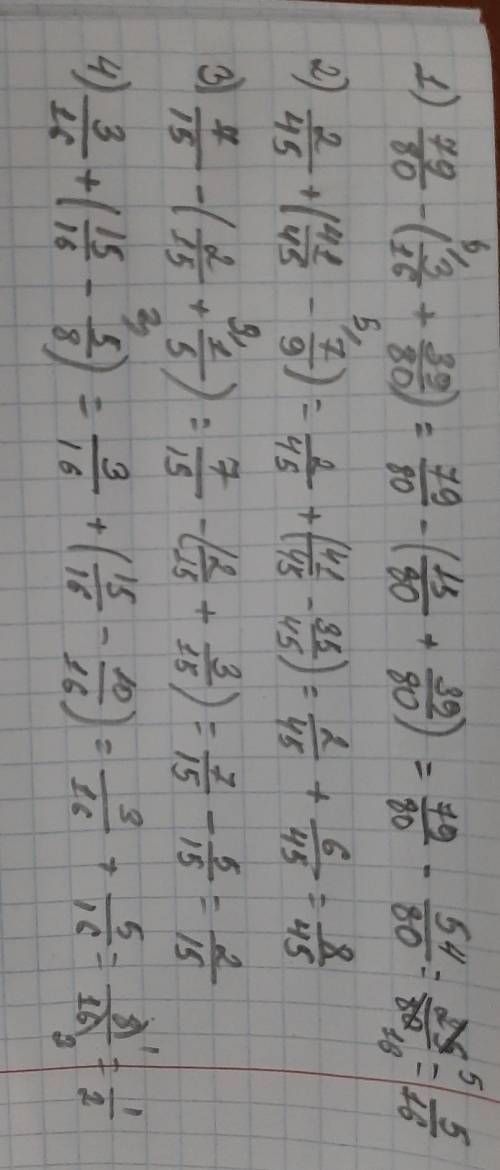 1) 79/80 - (3/16 + 39/80) = 79/80 - (15/80 + 39/80) = 79/80 - 54/80 = 25/80 = 5/16
2) 2/45 + (41/45 - 7/9) = 2/45 + (41/45 - 35/45) = 2/45 + 6/45 = 8/45
3) 7/15 - (2/15 + 1/5) = 7/15 - (2/15 + 3/15) = 7/15 - 5/15 = 2/15
4) 3/16 + (15/16 - 5/8) = 3/16 + (15/16 - 10/16) = 3/16 + 5/16 = 8/16 = 1/2